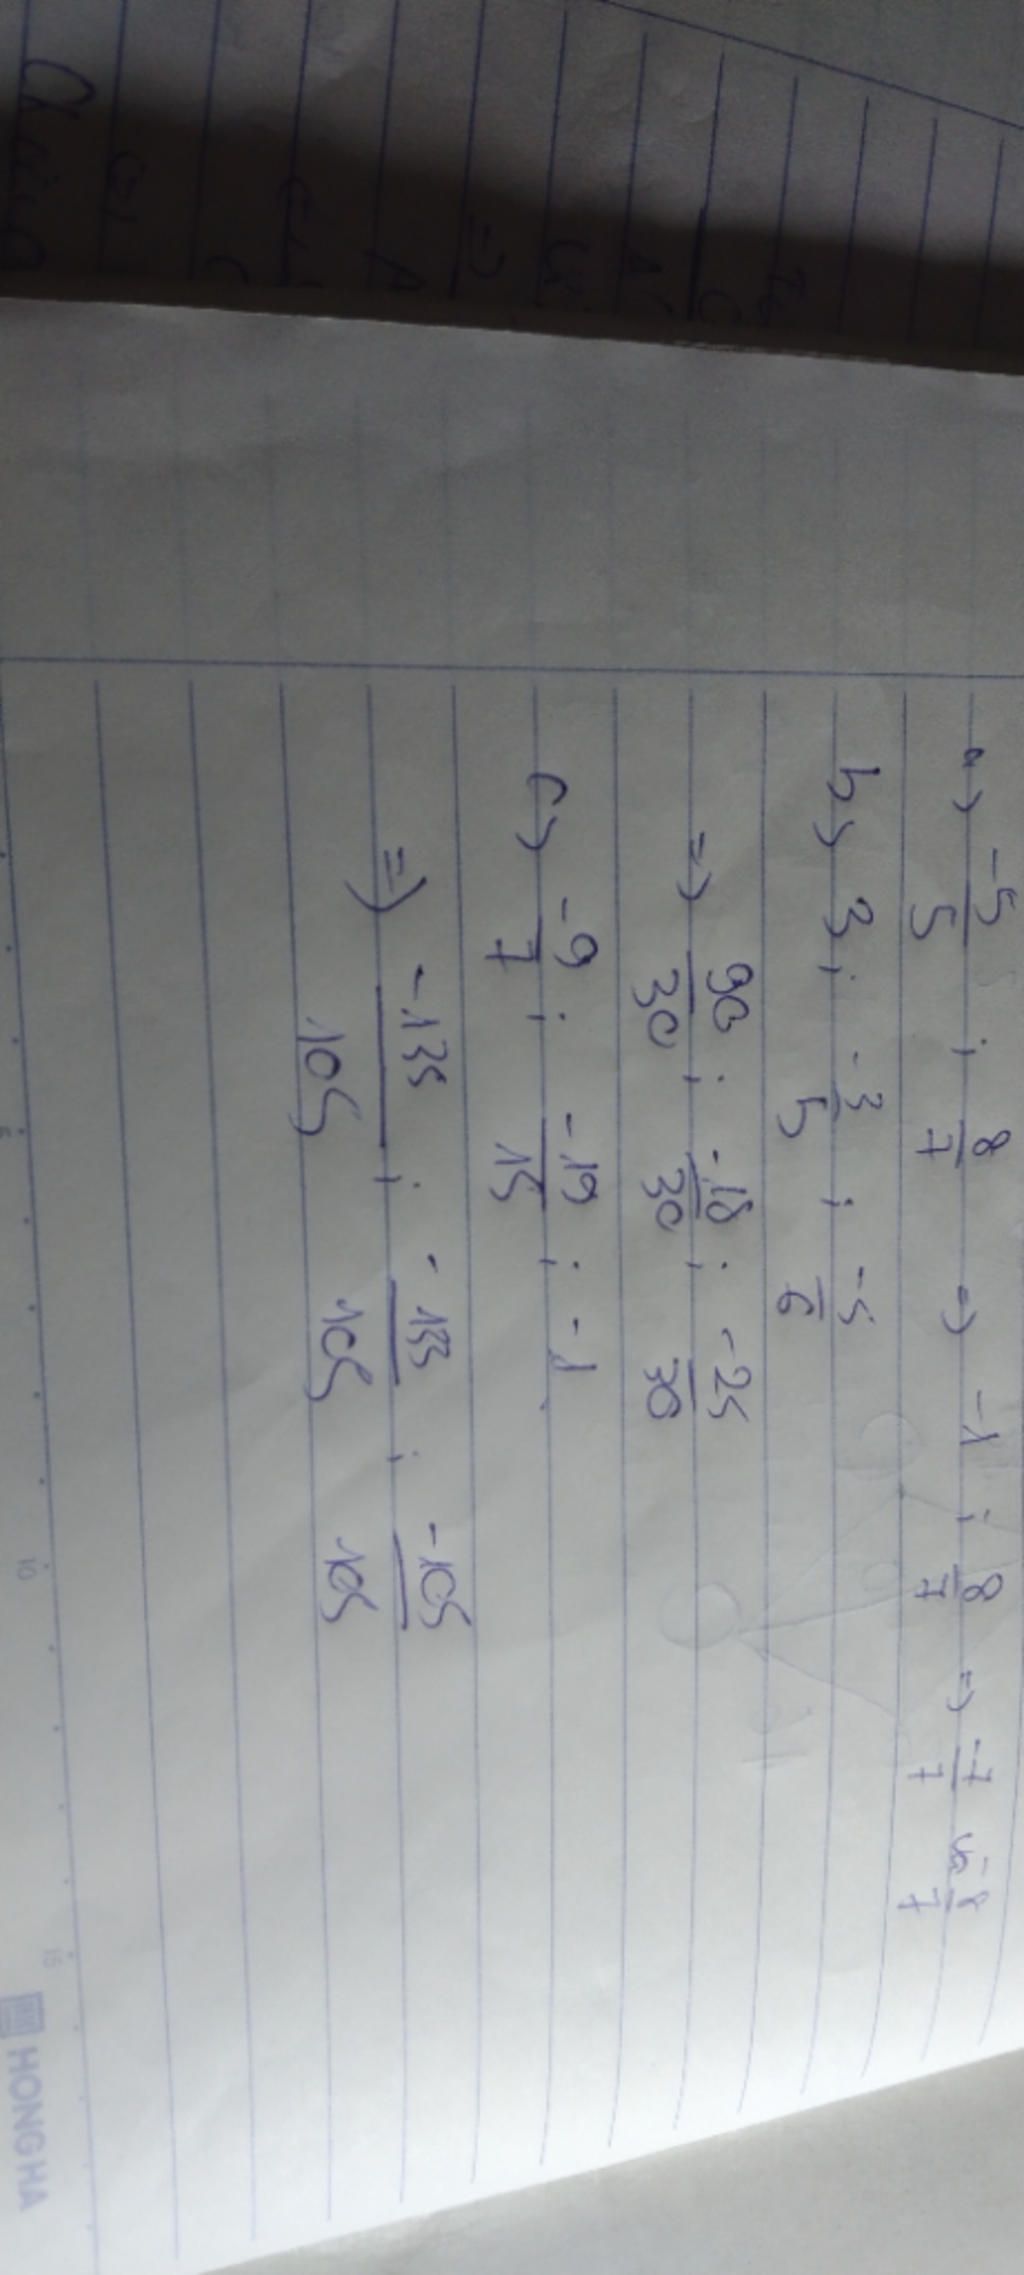 a) -5/5 ; 8/7 => -1 ; 8/7 => -7/7 và 8/7
b) 3 ; -3/5 ; -5/6
=> 90/30 ; -18/30 ; -25/30
c) -9/7 ; -19/15 ; -1
=> -135/105 ; -133/105 ; -105/105
5 10 15
HONG HA